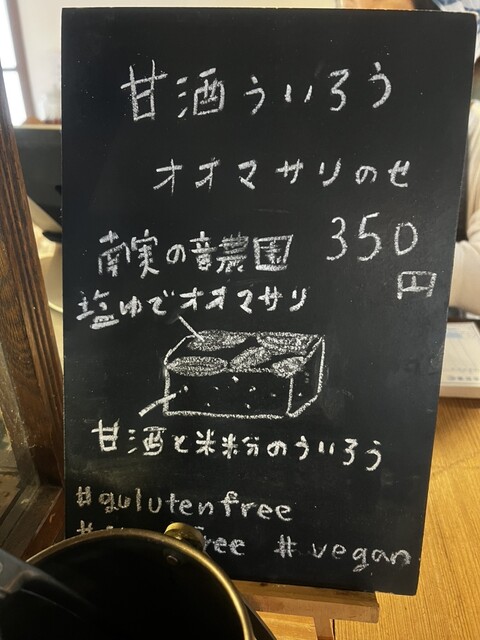 甘酒ういろう
オオマサリのせ
350
円
南実の音農園
塩ゆでオオマサリ
甘酒と米粉のういろう
#gulutenfree
free #vegan